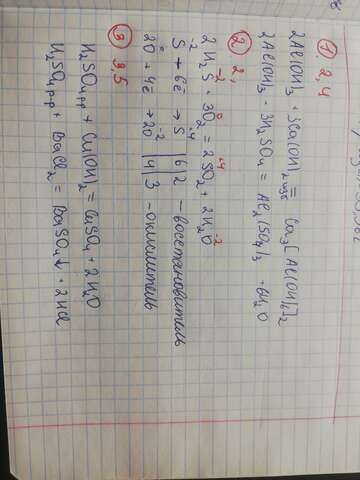 ① 2,4
2Al(OH)₃ + 3Ca(OH)₂ изб = Ca₃[Al(OH)₆]₂
2Al(OH)₃ + 3H₂SO₄ = Al₂(SO₄)₃ + 6H₂O
② 2,
2H₂S⁻² + 3O₂⁰ = 2S⁺⁴O₂ + 2H₂O⁻²
S⁻² + 6ē → S⁺⁴ | 6 | 2 – восстановитель
2O⁰ + 4ē → 2O⁻² | 4 | 3 – окислитель
③ 3,5
H₂SO₄ рр + Cu(OH)₂ = CuSO₄ + 2H₂O
H₂SO₄ рр + BaCl₂ = BaSO₄↓ + 2HCl